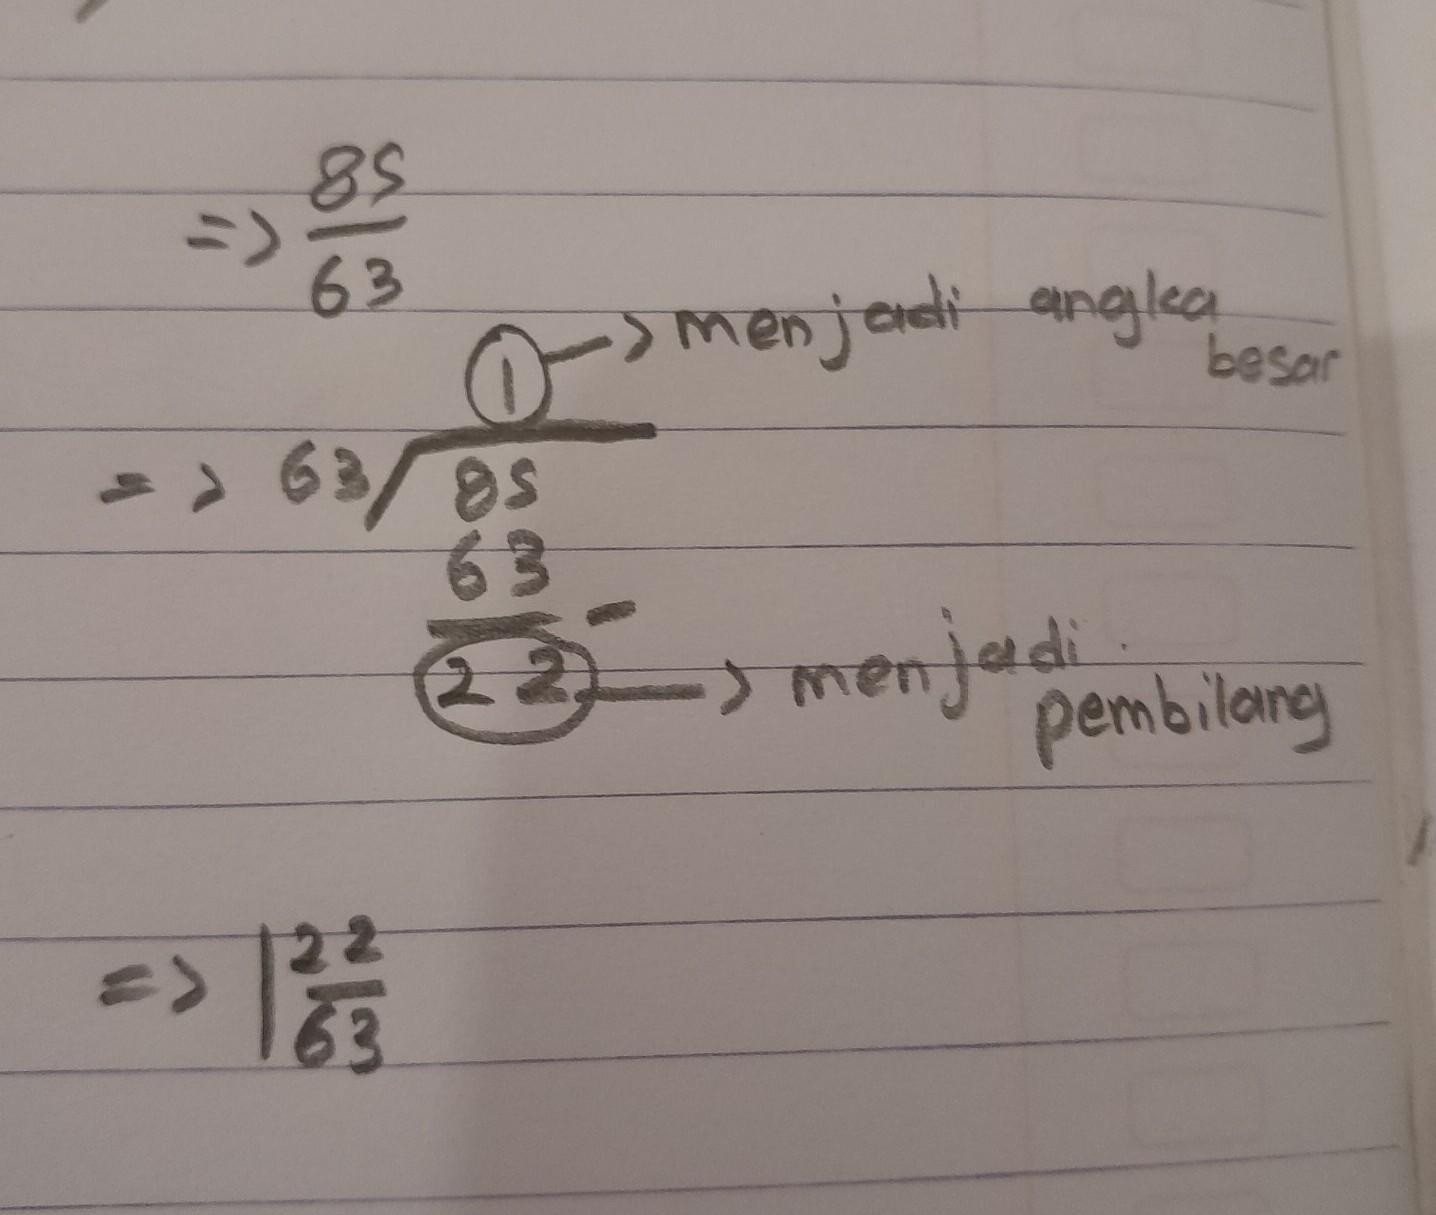 => 85/63
1 -> menjadi angka
besar
=> 63/85
63
-
22 -> menjadi
pembilang
=> 1 22/63